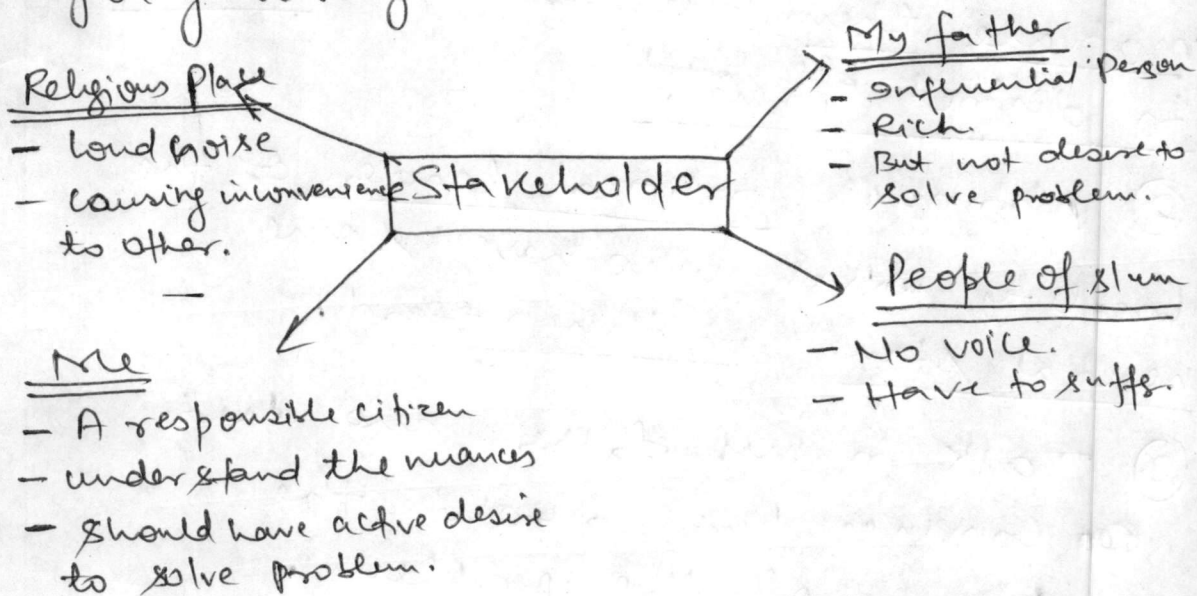 Stakeholder
Religious Place
- Loud noise
- causing inconvenience
to other.
-
My father
- Influential person
- Rich
- But not desire to
solve problem.
People of slum
- No voice.
- Have to suffer.
Me
- A responsible citizen
- understand the nuances
- should have active desire
to solve problem.